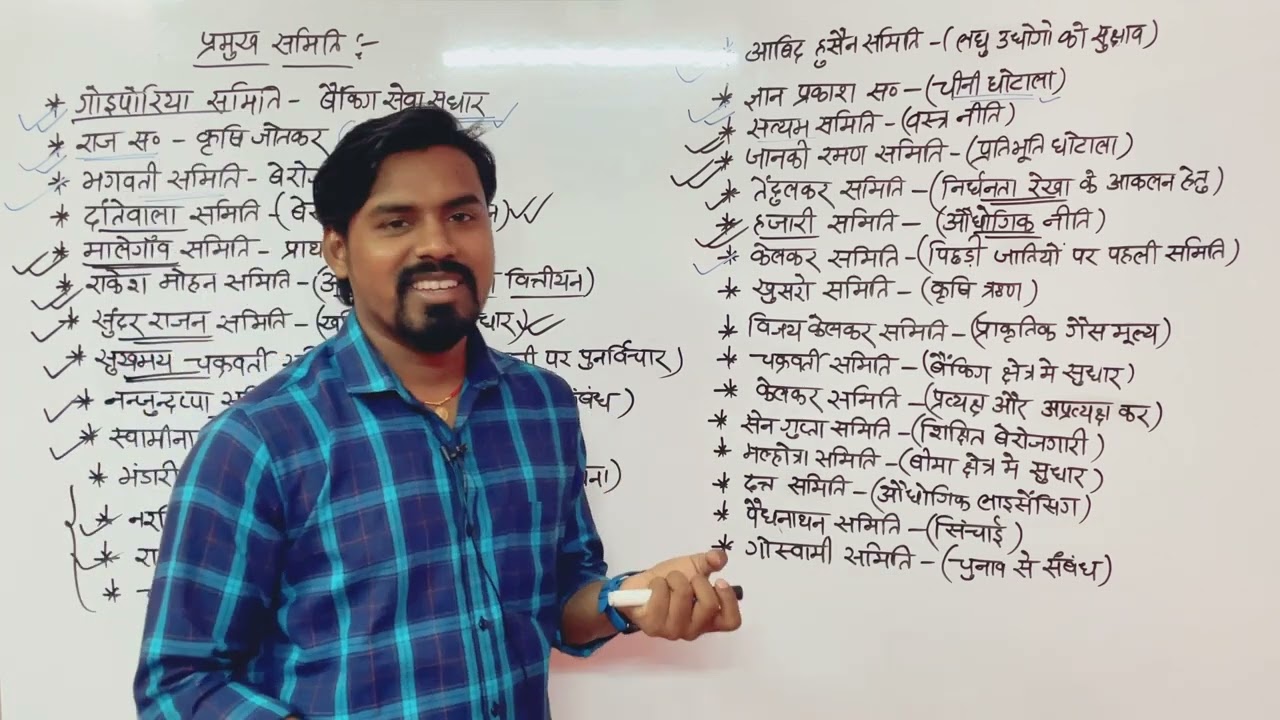 प्रमुख समिति :-
* गोइपोरिया समिति - बैंकिंग सेवा सुधार
* राज स० - कृषि जोतकर
* भगवती समिति - बेरो
* दांतेवाला समिति - (बे
* मालेगाँव समिति - प्राथ
* राकेश मोहन समिति - ( वित्तीयन)
* सुंदर राजन समिति - ( धार)
* सुखमय चक्रवर्ती पर पुनर्विचार)
* नन्जुन्दप्पा बंध)
* स्वामीना
* भंडारी ना)
*
* रा
*
* आबिद हुसैन समिति - (लघु उधोगो को सुझाव)
* ज्ञान प्रकाश स० - (चीनी घोटाला)
* सत्यम समिति - (वस्त्र नीति)
* जानकी रमण समिति - (प्रतिभूति घोटाला)
* तेंदुलकर समिति - (निर्धनता रेखा के आकलन हेतु)
* हजारी समिति - (औधोगिक नीति)
* केलकर समिति - (पिछड़ी जातियों पर पहली समिति)
* खुसरो समिति - (कृषि ऋण)
* विजय केलकर समिति - (प्राकृतिक गैस मूल्य)
* चक्रवर्ती समिति - (बैंकिंग क्षेत्र मे सुधार)
* केलकर समिति - (प्रत्यक्ष और अप्रत्यक्ष कर)
* सेन गुप्ता समिति - (शिक्षित बेरोजगारी)
* मल्होत्रा समिति - (बीमा क्षेत्र मे सुधार)
* दत्त समिति - (औधोगिक लाइसेंसिग)
* वैधनाथन समिति - (सिंचाई)
* गोस्वामी समिति - (चुनाव से संबंध)